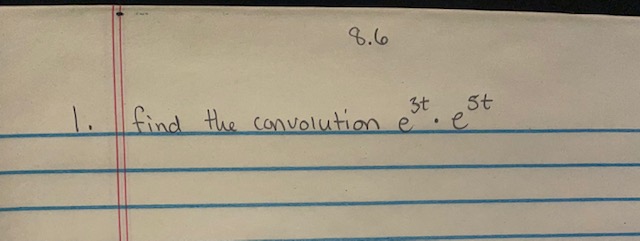 8.6
1. find the convolution e^3t · e^5t